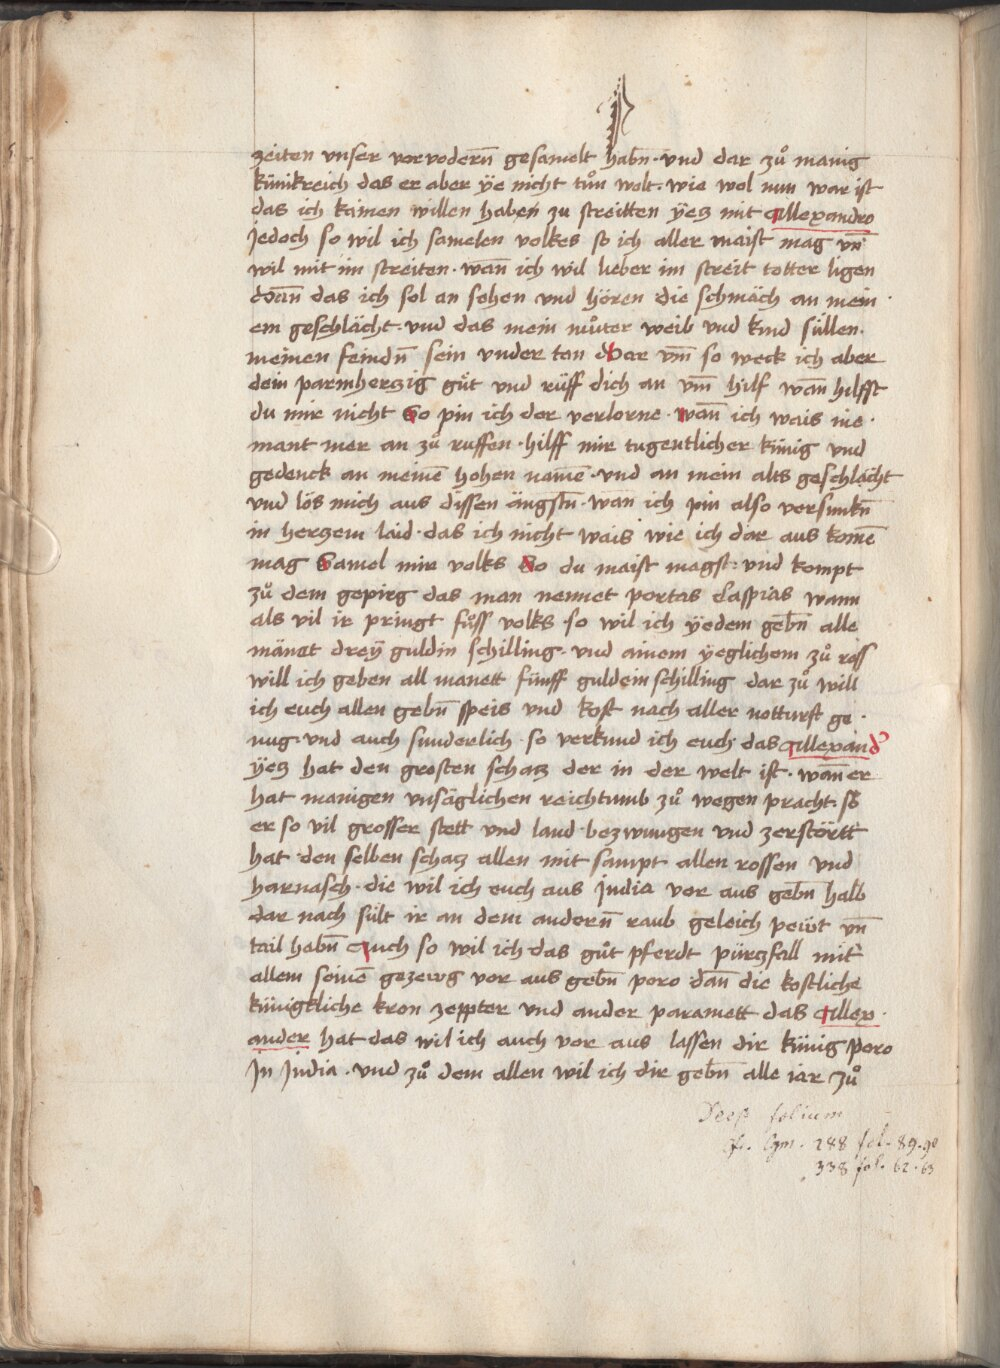 zeiten vnser vorvodern̄ gesamelt habn̄ · vnd dar zů manig
künikreich das er aber ÿe nicht tůn wolt · wie wol nun war ist
das ich kainen willen haben zu streitten ÿetz mit Allexandro
Jedoch so wil ich samelen volkes so ich aller maist mag vn̄
wil mit im streiten · wan̄ ich wil lieber im streit totter ligen
dan̄ das ich sol an sehen vnd hören die schmäch an mein ·
em geschlächt · vnd das mein můter weib vnd kind süllen ·
meinen feindn̄ sein vnder tan Dar vm̄ so weck ich aber
dein parmhertzig gůt vnd rüff dich an vm̄ hilf wan̄ hilfft
du mir nicht So pin ich der verlorne · wan̄ ich wais nie ·
mant mer an zů ruffen · hilff mir tugentlicher künig vnd
gedenck an meinē hohen namē · vnd an mein alts geschlächt
vnd lös mich aus dissen ängstn̄ · wan ich pin also versunkn̄
in hertzem laid · das ich nicht wais wie ich dar aus komē
mag Samel mir volks So du maist magst · vnd kompt
zů dem gepirg das man nennet portas Caspias wann
als vil ir pringt fůss volks · so wil ich ÿedem gebn̄ alle
mänet dreÿ guldin schilling · vnd ainem ÿeglichem zů ross
will ich geben all manett fünff guldein schilling dar zů will
ich euch allen gebn̄ speis vnd kost nach aller notturft ge ·
nug · vnd auch sunderlich · so verkund ich euch das Allexand
ÿetz hat den grosten schatz der in der welt ist · wan̄ er
hat manigen vnsäglichen reichtumb zů wegen pracht · so
er so vil grosser stett vnd land bezwungen vnd zerstörtt
hat · den selben schatz allen mit sampt allen rossen vnd
harnasch · die wil ich euch aus India vor aus gebn̄ halb
dar nach sült ir an dem andern̄ raub geleich pewt vn̄
tail habn̄ Auch so wil ich das gůt pferdt pürtzfall mit
allem seinē gezewg vor aus gebn̄ poro dan̄ die kostliche
künigkliche kron zeppter vnd ander paramett das Allex ·
ander hat das wil ich auch vor aus lassen dir künig poro
In India · vnd zů dem allen wil ich dir gebn̄ alle iar zů
folium
cf. Cgm. 288 fol. 89-90
338 fol. 62-63